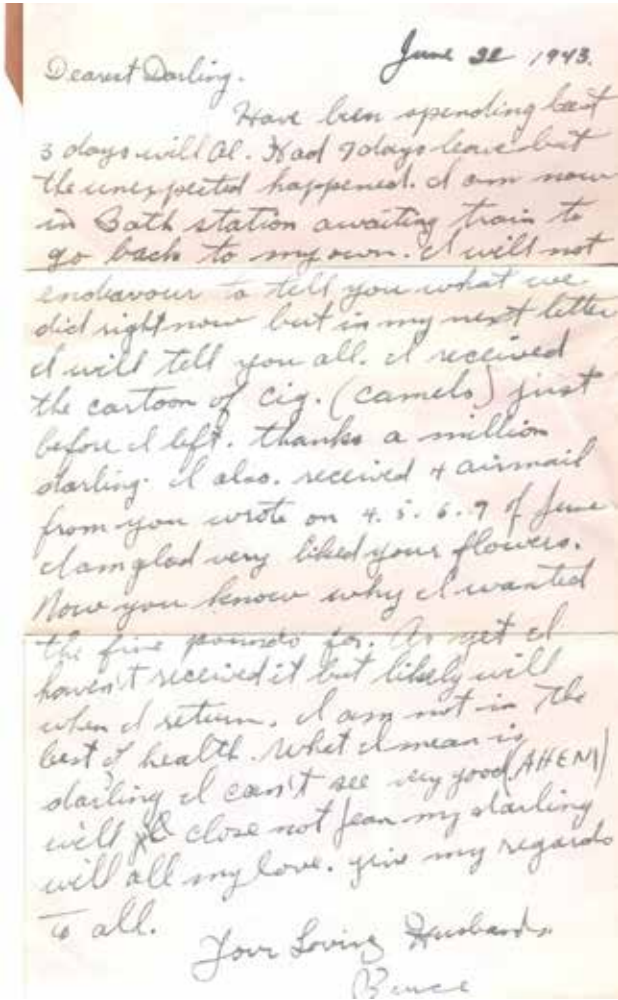 June 22 1943.
Dearest Darling.
Have been spending last
3 days will Al. Had 7 days leave but
the unexpected happened. I am now
in Bath station awaiting train to
go back to my own. I will not
endeavour to tell you what we
did right now but in my next letter
I will tell you all. I received
the cartoon of Cig. (Camels) just
before I left. thanks a million
darling. I also. received 4 airmail
from you wrote on 4. 5. 6. 7 of June
I am glad very liked your flowers.
Now you know why I wanted
the five pounds for. As yet I
haven't received it but likely will
when I return. I am not in the
best of health. What I mean is
darling I can't see very good (AHEM)
will close not fear my darling
will all my love. give my regards
to all.
Your Loving Husband
Bruce